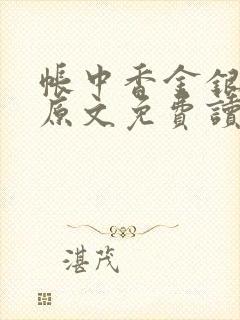 帳中香金銀
原文免費讀
湛茂